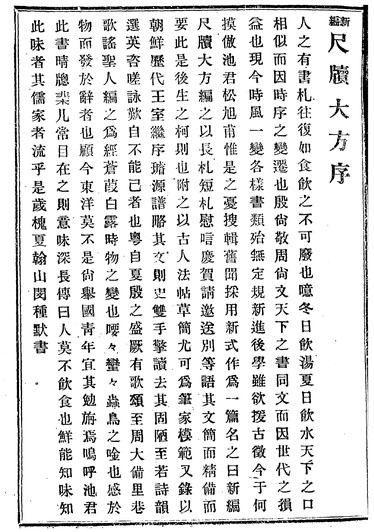 新編 尺牘大方序
人之有書札往復如食飲之不可廢也噫冬日飲湯夏日飲水天下之口
相似而因時序之變遷也殷尙敬周尙文天下之書同文而因世代之損
益也現今時風一變各樣書類殆無定規新進後學雖欲援古徵今于何
摸倣池君松旭甫惟是之憂搜輯舊聞採用新式作爲一篇名之曰新編
尺牘大方編之以長札短札慰唁慶賀請邀送別等語其文簡而精備而
要此是後生之柯則也附之以古人法帖草簡尤可爲筆家模範又錄以
朝鮮歷代王室繼序璿源譜略其文則史雙手擎讀去其固陋至若詩韻
選英咨嗟詠歎自不能己者也粤自夏殷之盛厥有歌頌至周大備里巷
歌謠聖人編之爲經蒼葭白露時物之變也喓々蠻々蟲鳥之唫也感於
物而發於辭者也顧今東洋莫不是尙擧國靑年宜其勉旃焉嗚呼池君
此書晴牕棐几常目在之則意味深長傳曰人莫不飲食也鮮能知味知
此味者其儒家者流乎是歲槐夏翰山閔種默書